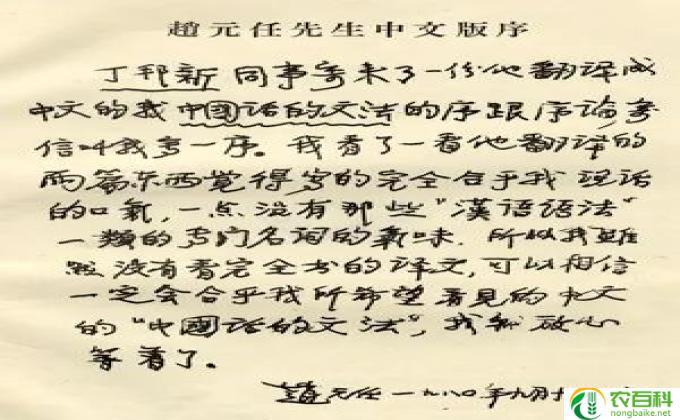 趙元任先生中文版序
丁邦新同事寄来了一份他翻译成
中文的我中國话的文法的序跟序論来
信叫我写一序。我看了一看他翻译的
两篇东西觉得写的完全合乎我说话
的口氣,一点没有那些"漢语语法"
一類的专门名词的氣味.所以我雖
然没有看完全书的译文,可以相信
一定会合乎我所希望看見的中文
的"中國话的文法",我就放心
等着了。
趙元任 一九八〇年九月十
农百科
nongbaike.com